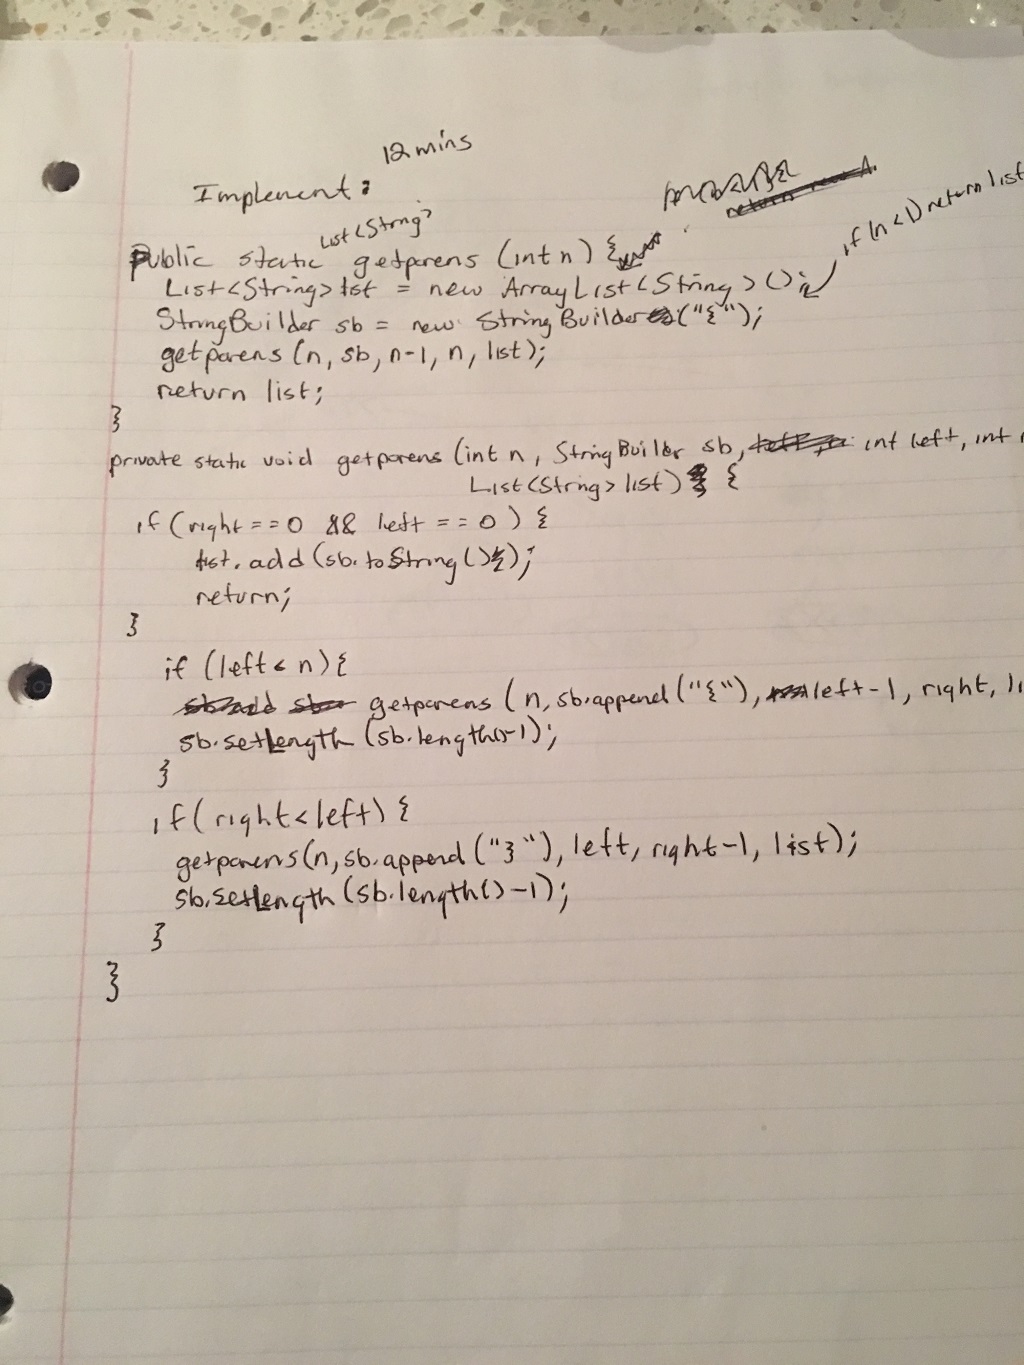 12 mins
Implement:
List<String>
Public static getparens (int n) {
if (n<1) return list
List<String> list = new ArrayList<String>();
StringBuilder sb = new StringBuilder("{");
getparens (n, sb, n-1, n, list);
return list;
}
private static void getparens (int n, StringBuilder sb, int left, int r
List<String> list) {
if (right == 0 && left == 0) {
list.add (sb.toString());
return;
}
if (left < n) {
getparens (n, sb.append("{"), left-1, right, li
sb.setLength (sb.length()-1);
}
if (right < left) {
getparens(n, sb.append("}"), left, right-1, list);
sb.setLength (sb.length()-1);
}
}